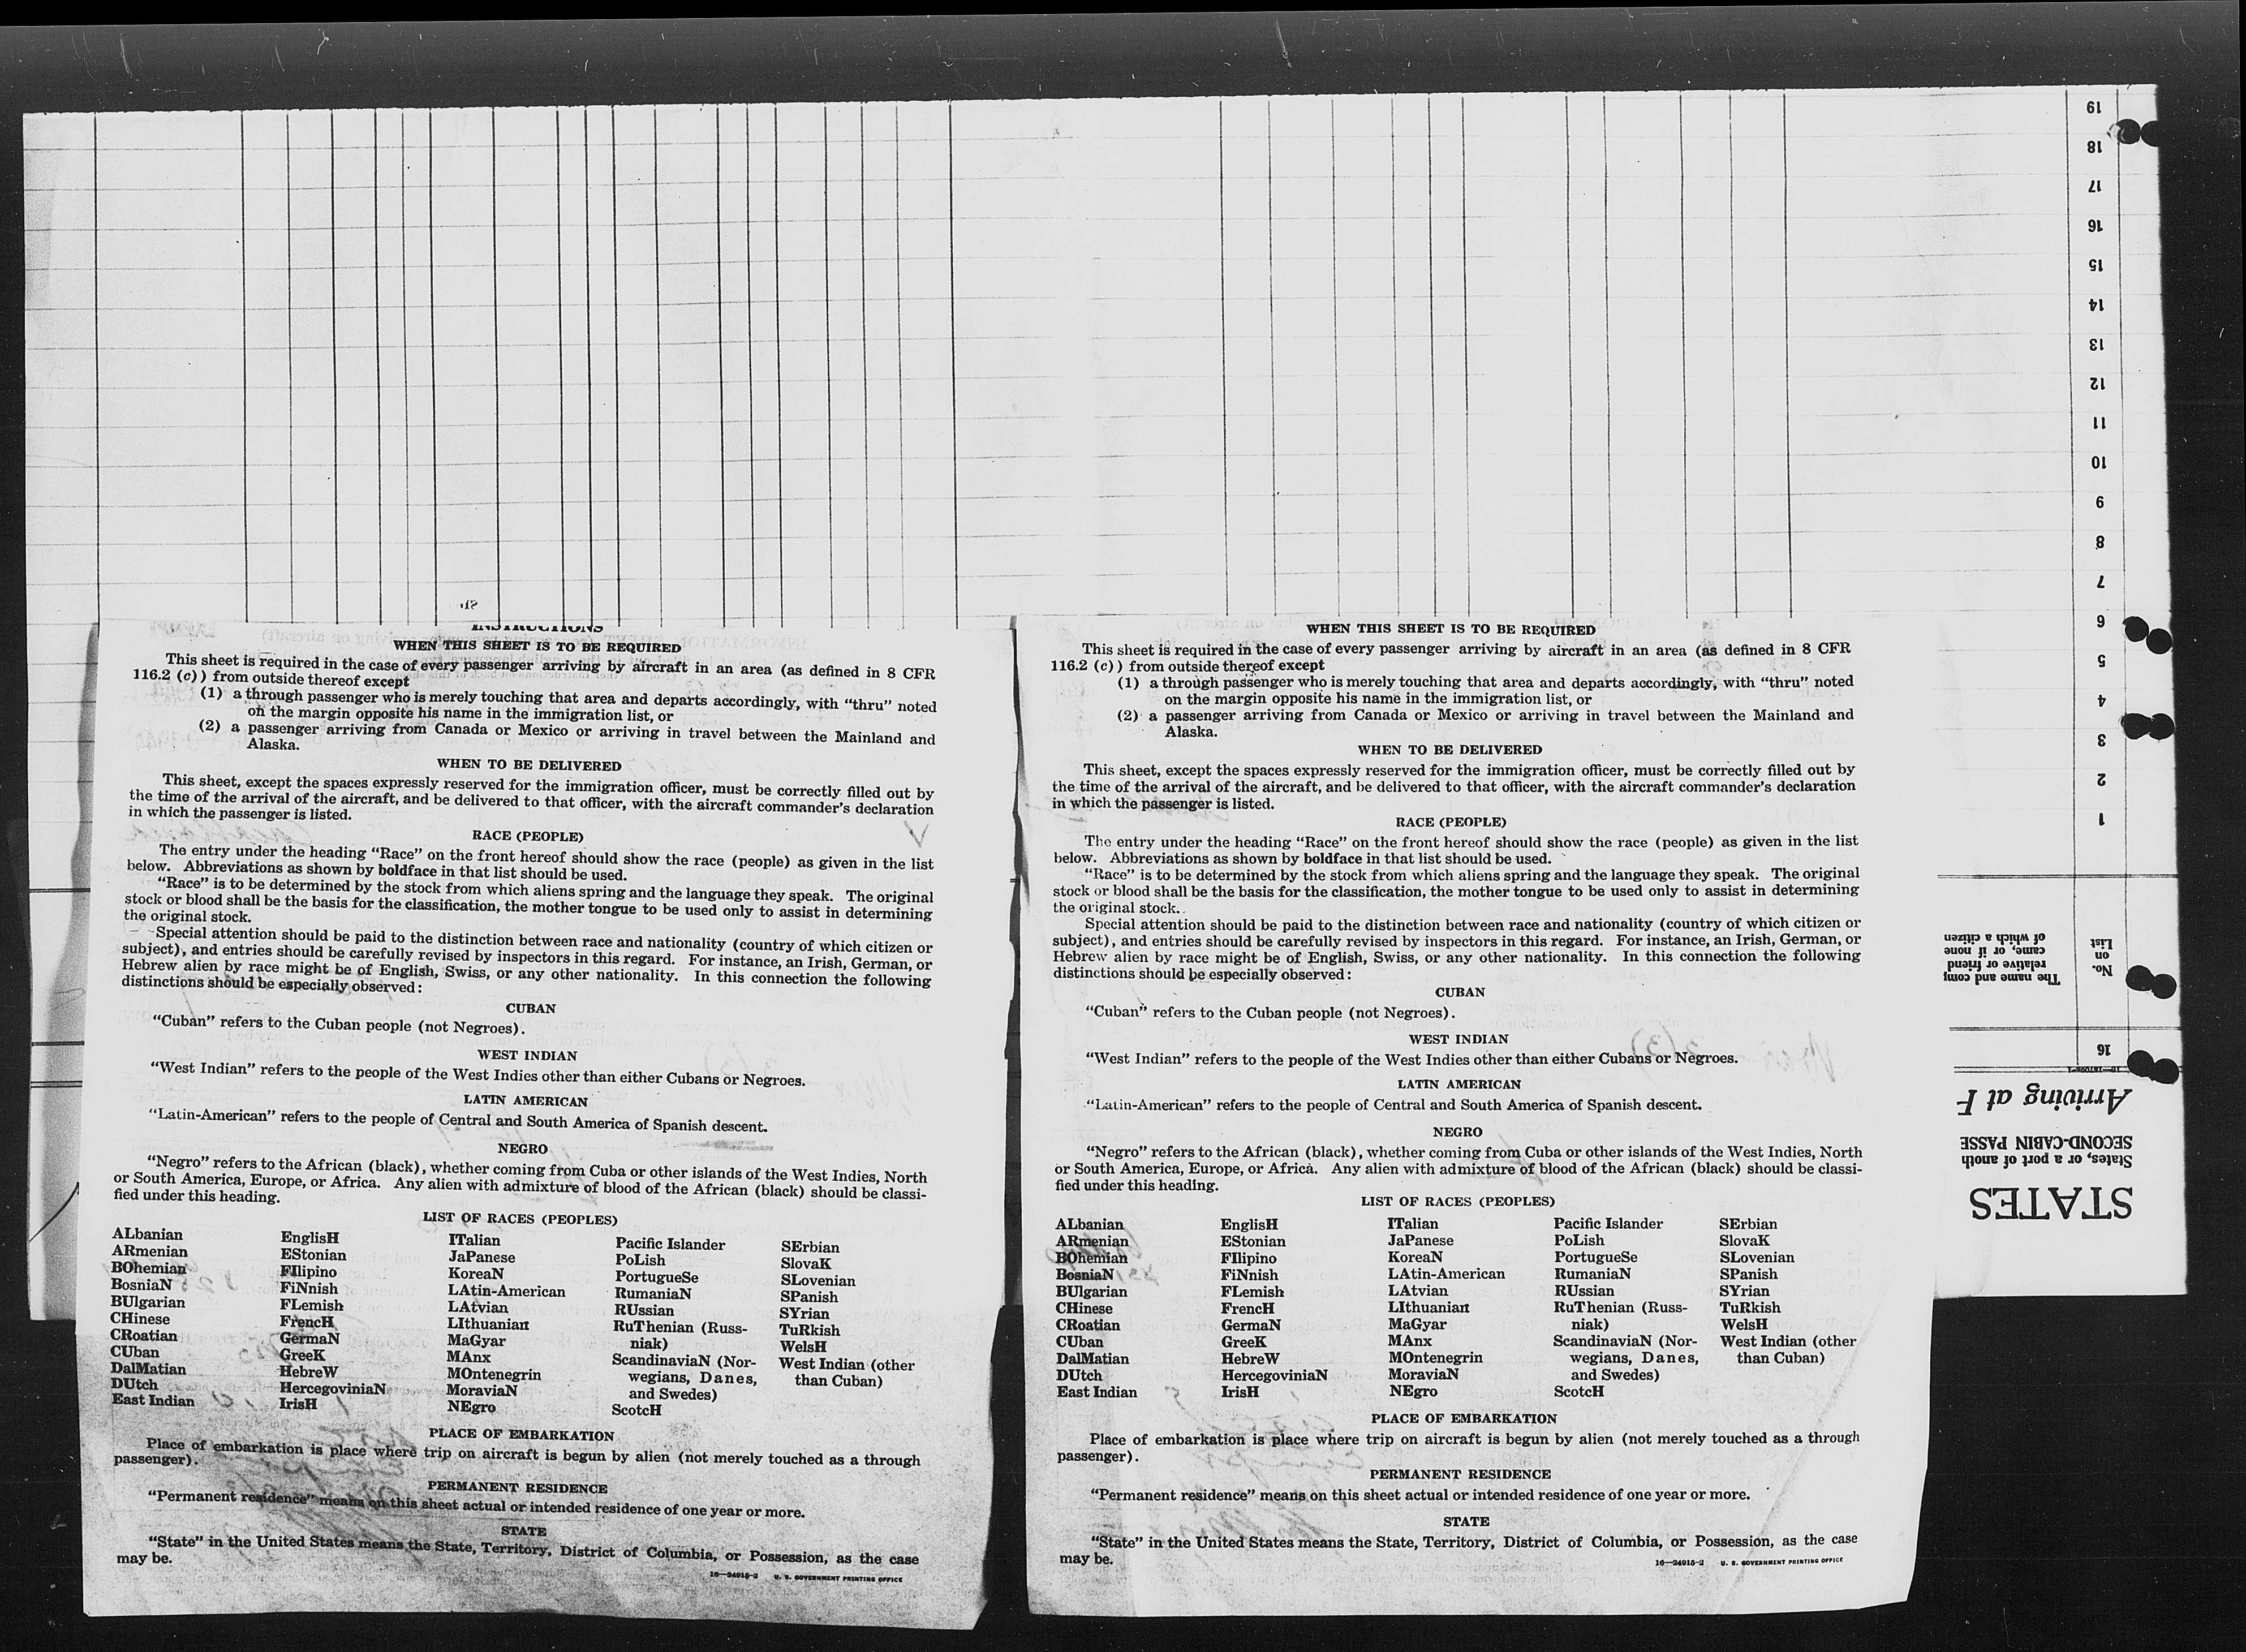 INSTRUCTIONS
WHEN THIS SHEET IS TO BE REQUIRED
This sheet is required in the case of every passenger arriving by aircraft in an area (as defined in 8 CFR
116.2 (c)) from outside thereof except
(1) a through passenger who is merely touching that area and departs accordingly, with “thru” noted
on the margin opposite his name in the immigration list, or
(2) a passenger arriving from Canada or Mexico or arriving in travel between the Mainland and
Alaska.
WHEN TO BE DELIVERED
This sheet, except the spaces expressly reserved for the immigration officer, must be correctly filled out by
the time of the arrival of the aircraft, and be delivered to that officer, with the aircraft commander’s declaration
in which the passenger is listed.
RACE (PEOPLE)
The entry under the heading “Race” on the front hereof should show the race (people) as given in the list
below. Abbreviations as shown by boldface in that list should be used.
“Race” is to be determined by the stock from which aliens spring and the language they speak. The original
stock or blood shall be the basis for the classification, the mother tongue to be used only to assist in determining
the original stock.
Special attention should be paid to the distinction between race and nationality (country of which citizen or
subject), and entries should be carefully revised by inspectors in this regard. For instance, an Irish, German, or
Hebrew alien by race might be of English, Swiss, or any other nationality. In this connection the following
distinctions should be especially observed:
CUBAN
“Cuban” refers to the Cuban people (not Negroes).
WEST INDIAN
“West Indian” refers to the people of the West Indies other than either Cubans or Negroes.
LATIN AMERICAN
“Latin-American” refers to the people of Central and South America of Spanish descent.
NEGRO
“Negro” refers to the African (black), whether coming from Cuba or other islands of the West Indies, North
or South America, Europe, or Africa. Any alien with admixture of blood of the African (black) should be classi-
fied under this heading.
LIST OF RACES (PEOPLES)
ALbanian
ARmenian
BOhemian
BosniaN
BUlgarian
CHinese
CRoatian
CUban
DalMatian
DUtch
East Indian
EnglisH
EStonian
FIlipino
FiNnish
FLemish
FrencH
GermaN
GreeK
HebreW
HercegoviniaN
IrisH
ITalian
JaPanese
KoreaN
LAtin-American
LAtvian
LIthuanian
MaGyar
MAnx
MOntenegrin
MoraviaN
NEgro
Pacific Islander
PoLish
PortugueSe
RumaniaN
RUssian
RuThenian (Russ-
niak)
ScandinaviaN (Nor-
wegians, Danes,
and Swedes)
ScotcH
SErbian
SlovaK
SLovenian
SPanish
SYrian
TuRkish
WelsH
West Indian (other
than Cuban)
PLACE OF EMBARKATION
Place of embarkation is place where trip on aircraft is begun by alien (not merely touched as a through
passenger).
PERMANENT RESIDENCE
“Permanent residence” means on this sheet actual or intended residence of one year or more.
STATE
“State” in the United States means the State, Territory, District of Columbia, or Possession, as the case
may be.
16—24915-2 U. S. GOVERNMENT PRINTING OFFICE
WHEN THIS SHEET IS TO BE REQUIRED
This sheet is required in the case of every passenger arriving by aircraft in an area (as defined in 8 CFR
116.2 (c)) from outside thereof except
(1) a through passenger who is merely touching that area and departs accordingly, with “thru” noted
on the margin opposite his name in the immigration list, or
(2) a passenger arriving from Canada or Mexico or arriving in travel between the Mainland and
Alaska.
WHEN TO BE DELIVERED
This sheet, except the spaces expressly reserved for the immigration officer, must be correctly filled out by
the time of the arrival of the aircraft, and be delivered to that officer, with the aircraft commander’s declaration
in which the passenger is listed.
RACE (PEOPLE)
The entry under the heading “Race” on the front hereof should show the race (people) as given in the list
below. Abbreviations as shown by boldface in that list should be used.
“Race” is to be determined by the stock from which aliens spring and the language they speak. The original
stock or blood shall be the basis for the classification, the mother tongue to be used only to assist in determining
the original stock.
Special attention should be paid to the distinction between race and nationality (country of which citizen or
subject), and entries should be carefully revised by inspectors in this regard. For instance, an Irish, German, or
Hebrew alien by race might be of English, Swiss, or any other nationality. In this connection the following
distinctions should be especially observed:
CUBAN
“Cuban” refers to the Cuban people (not Negroes).
WEST INDIAN
“West Indian” refers to the people of the West Indies other than either Cubans or Negroes.
LATIN AMERICAN
“Latin-American” refers to the people of Central and South America of Spanish descent.
NEGRO
“Negro” refers to the African (black), whether coming from Cuba or other islands of the West Indies, North
or South America, Europe, or Africa. Any alien with admixture of blood of the African (black) should be classi-
fied under this heading.
LIST OF RACES (PEOPLES)
ALbanian
ARmenian
BOhemian
BosniaN
BUlgarian
CHinese
CRoatian
CUban
DalMatian
DUtch
East Indian
EnglisH
EStonian
FIlipino
FiNnish
FLemish
FrencH
GermaN
GreeK
HebreW
HercegoviniaN
IrisH
ITalian
JaPanese
KoreaN
LAtin-American
LAtvian
LIthuanian
MaGyar
MAnx
MOntenegrin
MoraviaN
NEgro
Pacific Islander
PoLish
PortugueSe
RumaniaN
RUssian
RuThenian (Russ-
niak)
ScandinaviaN (Nor-
wegians, Danes,
and Swedes)
ScotcH
SErbian
SlovaK
SLovenian
SPanish
SYrian
TuRkish
WelsH
West Indian (other
than Cuban)
PLACE OF EMBARKATION
Place of embarkation is place where trip on aircraft is begun by alien (not merely touched as a through
passenger).
PERMANENT RESIDENCE
“Permanent residence” means on this sheet actual or intended residence of one year or more.
STATE
“State” in the United States means the State, Territory, District of Columbia, or Possession, as the case
may be.
16—24915-2 U. S. GOVERNMENT PRINTING OFFICE
STATES
States, or a port of anoth
SECOND-CABIN PASSE
Arriving at F
16
No.
on
List
The name and comp
relative or friend
came, or if none
of which a citizen
1
2
3
4
5
6
7
8
9
10
11
12
13
14
15
16
17
18
19